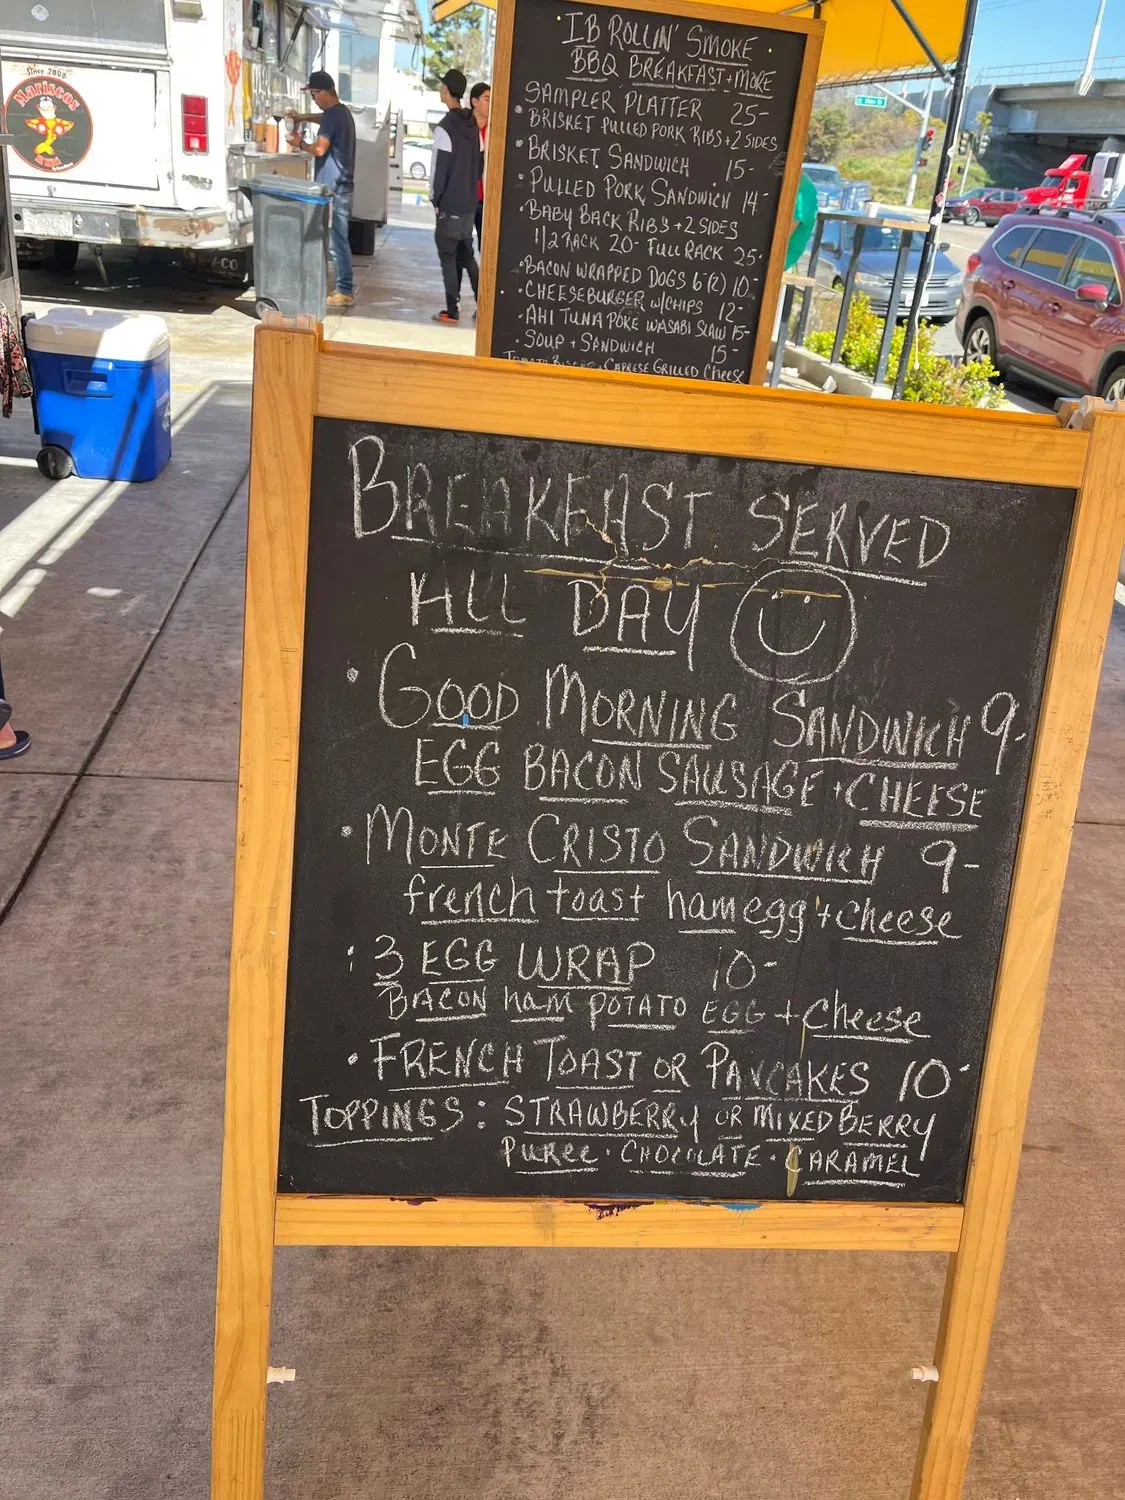 Since 2008
Mariscos
IB ROLLIN' SMOKE
BBQ BREAKFAST + MORE
SAMPLER PLATTER 25-
BRISKET PULLED PORK RIBS + 2 SIDES
• BRISKET SANDWICH 15-
• PULLED PORK SANDWICH 14-
• BABY BACK RIBS + 2 SIDES
1/2 RACK 20- FULL RACK 25-
• BACON WRAPPED DOGS 6 (2) 10-
• CHEESEBURGER W/CHIPS 12-
• AHI TUNA POKE WASABI SLAW 15-
• SOUP + SANDWICH 15-
TOMATO BISQUE + CAPRESE GRILLED CHEESE
BREAKFAST SERVED
ALL DAY
• GOOD MORNING SANDWICH 9-
EGG BACON SAUSAGE + CHEESE
• MONTE CRISTO SANDWICH 9-
french toast ham egg + cheese
• 3 EGG WRAP 10-
BACON ham POTATO EGG + cheese
• FRENCH TOAST OR PANCAKES 10-
TOPPINGS: STRAWBERRY OR MIXED BERRY
Puree • CHOCOLATE • CARAMEL